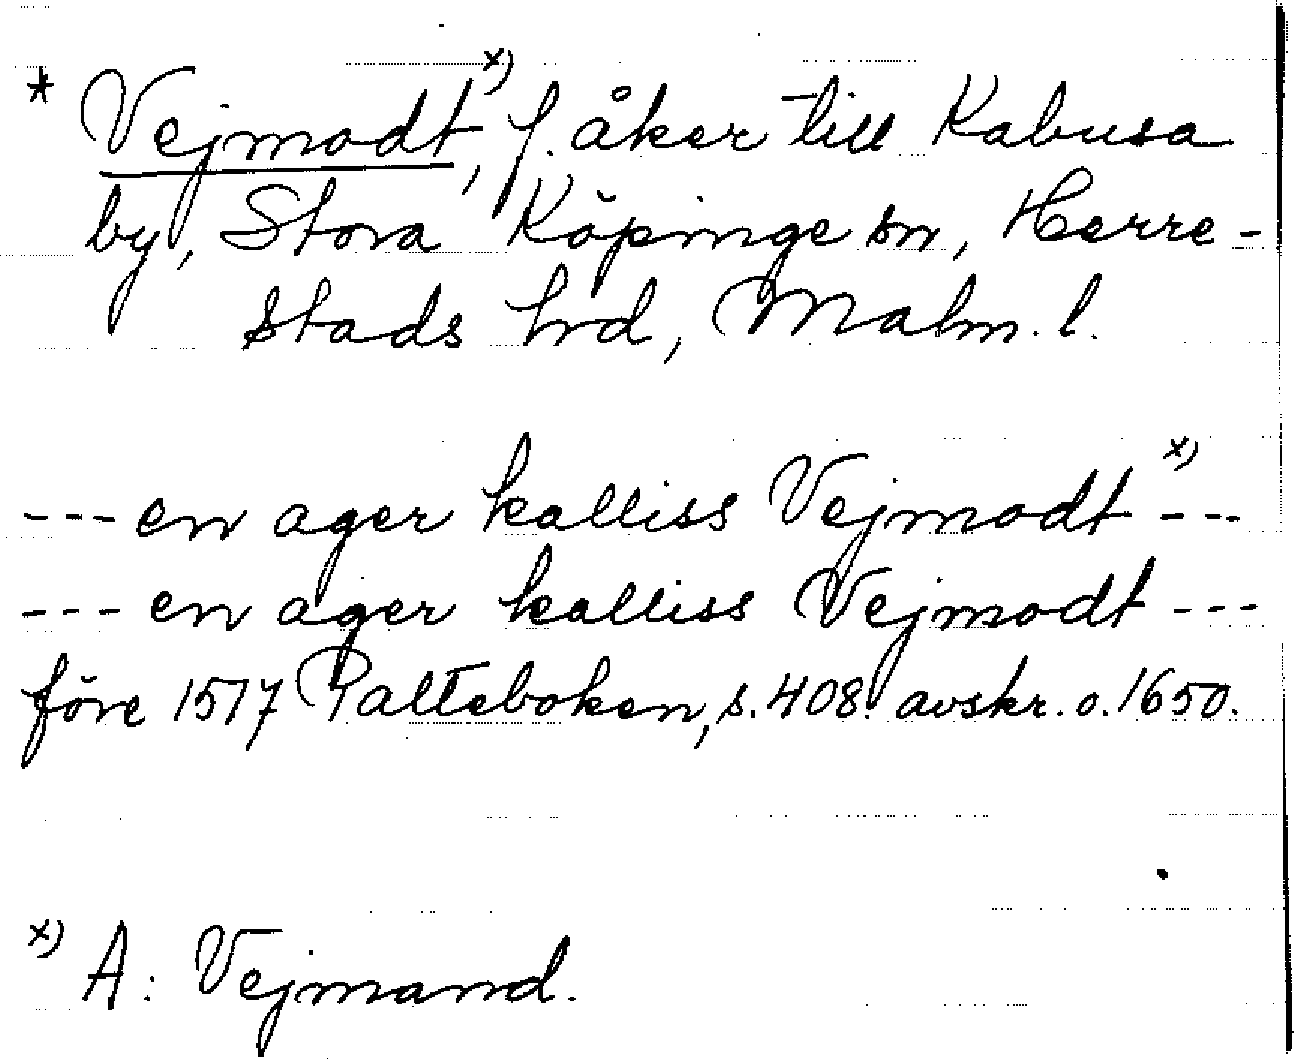 * Vejmodt,x) f. åker till Kabusa
by, Stora Köpinge sn, Herre-
stads hrd, Malm. l.
--- en ager kalliss Vejmodt x) ---
--- en ager kalliss Vejmodt ---
före 1517 Palteboken, s. 408. avskr. o. 1650.
x) A: Vejmand.